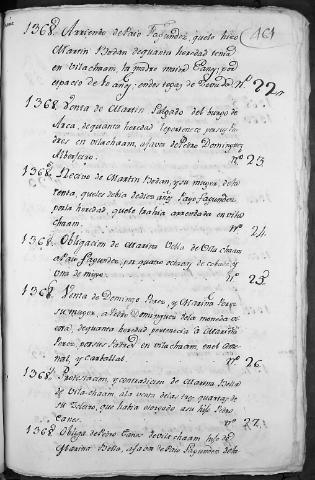 461
1368. Arriendo de Paio Fagundez, quele hizo
Martin Bodan de quanta heredad tenia
en Vilachaam, su madre Maria Eanz, por
espacio de 10 años; en dos tegas de N.º 22
1368. Venta de Martin Salgado del burgo de
Arca, de quanta heredad le pertenece por sus Pa
dres en vilachaam, a favor de Pedro Dominguez
Alberguero. N.º 23
1368. Recivo de Martin Bodan, y su muger, dela
renta, queles debia de diez años Payo Fagundez
por la heredad, quele trahia arrendada en vila
chaam. N.º 24
1368. Obligacion de Marina Vella de Vilachaam
a Paio Fagundez, por quatro ochavas de cebada, y
una de mijo. N.º 25
1368. Venta de Domingo Perez, y Marina Perez
su muger, a Pedro Dominguez dela moneda
de quanta heredad pertenecia a Marina
Perez, por sus Padres en vilachaam, en el
nal, y Carballal. N.º 26
1368. Protestacion, y contradicion de Marina Bella
de Vila-chaam, ala venta delas tres quartas de
su que habia otorgado asu hijo Pedro
Eanes. N.º 27
1368. Obliga. de Pedro Eanes de vilachaam hijo de
Marina Bella, a favor de Paio Fagundez dela